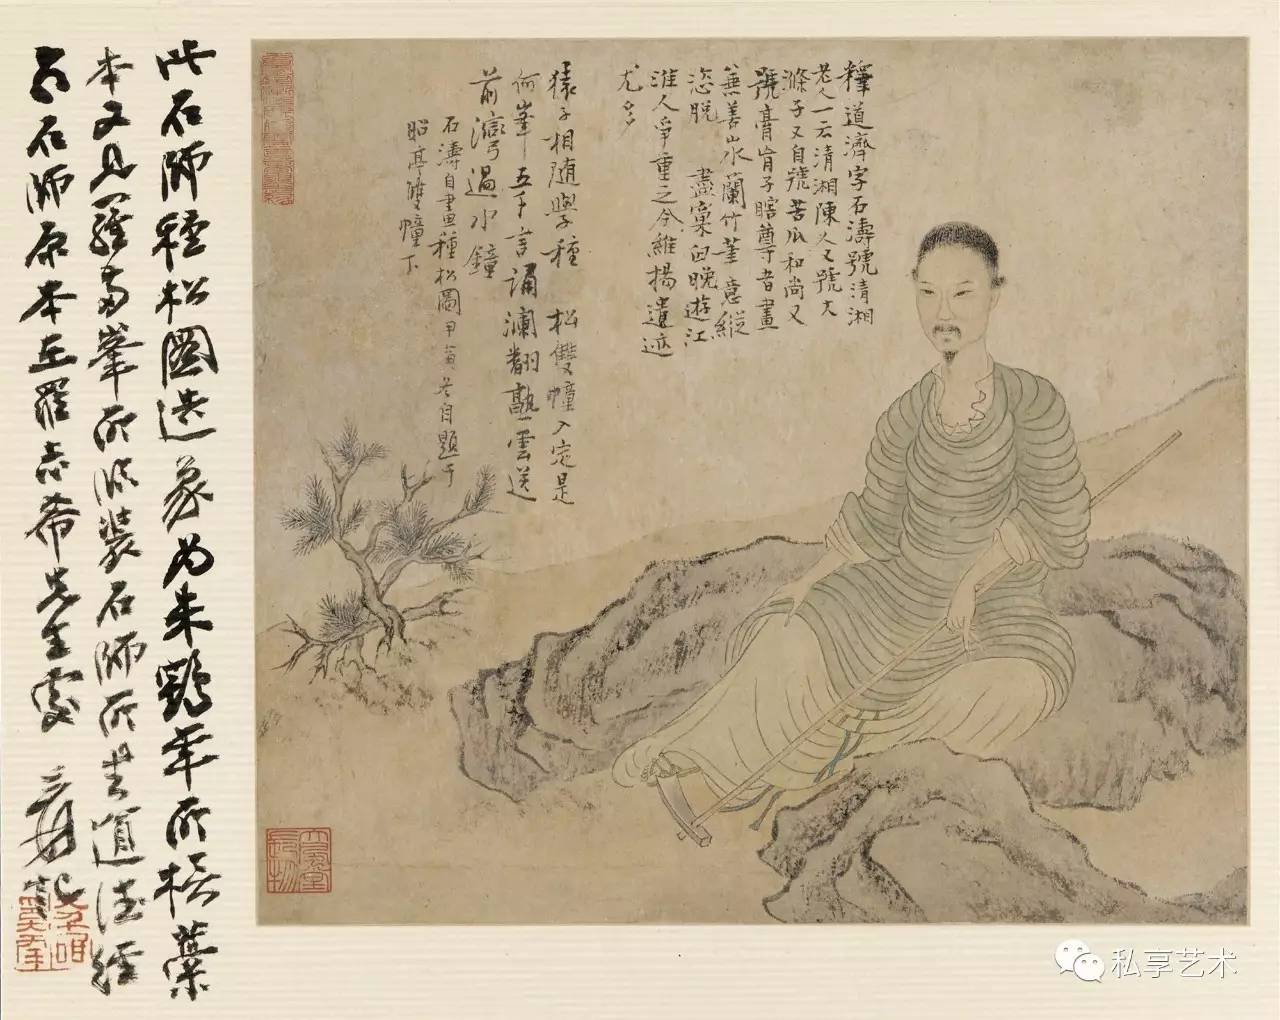 釋道濟字石濤號清湘
老人一云清湘陳人又號大
滌子又自號苦瓜和尚又
號膏肓子瞎尊者畫
兼善山水蘭竹筆意縱
恣脱 盡窠臼晚遊江
淮人爭重之今維揚遺迹
尤多
猿子相随與子種 松雙幢入定是
何峯五千言誦瀾翻熟雲送
前灣過水鐘
石濤自畫種松圖甲寅冬自題于
昭亭雙幢下
此石師種松圖造象為朱鶴年所橅藁
本又見羅兩峯所臨裝石師所書道德經
前石師原本在羅志希先生處 爰記
私享艺术